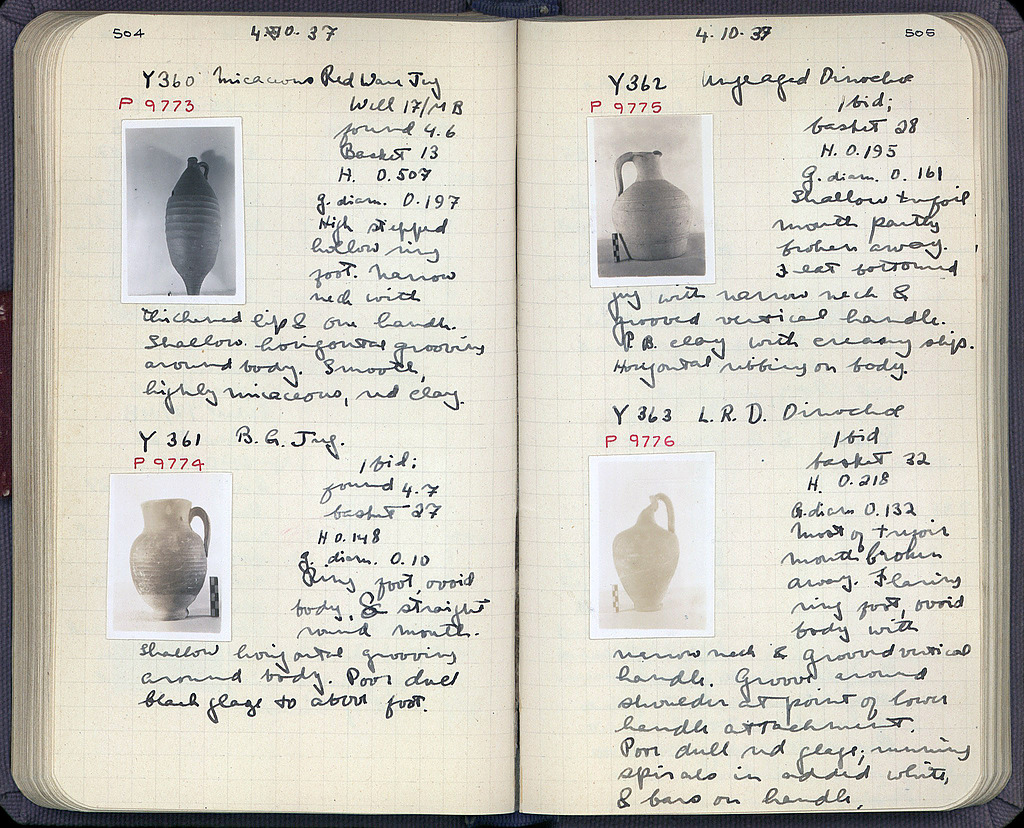 504
4.10.37
Y360 Micaceous Red Ware Jug
P 9773
Well 17/MB
found 4.6
Basket 13
H. 0.507
g. diam. 0.197
High stepped
hollow ring
foot. Narrow
neck with
thickened lip & one handle.
Shallow horizontal grooving
around body. Smooth,
highly micaceous, red clay.
Y 361 B. G. Jug.
P 9774
Ibid;
found 4.7
basket 27
H 0.148
g. diam. 0.10
Ring foot, ovoid
body, & straight
round mouth.
Shallow horizontal grooving
around body. Poor dull
black glaze to about foot.
505
4.10.37
Y362 Unglazed Oinochoe
P 9775
Ibid;
basket 28
H. 0.195
G. diam. 0.161
Shallow trefoil
mouth partly
broken away.
Flat bottomed
jug with narrow neck &
grooved vertical handle.
P. B. clay with creamy slip.
Horizontal ribbing on body.
Y 363 L. R. D. Oinochoe
P 9776
Ibid
basket 32
H. 0.218
G. diam 0.132
Most of trefoil
mouth broken
away. Flaring
ring foot, ovoid
body with
narrow neck & grooved vertical
handle. Groove around
shoulder at point of lower
handle attachment.
Poor dull red glaze; running
spirals in added white,
& bars on handle.